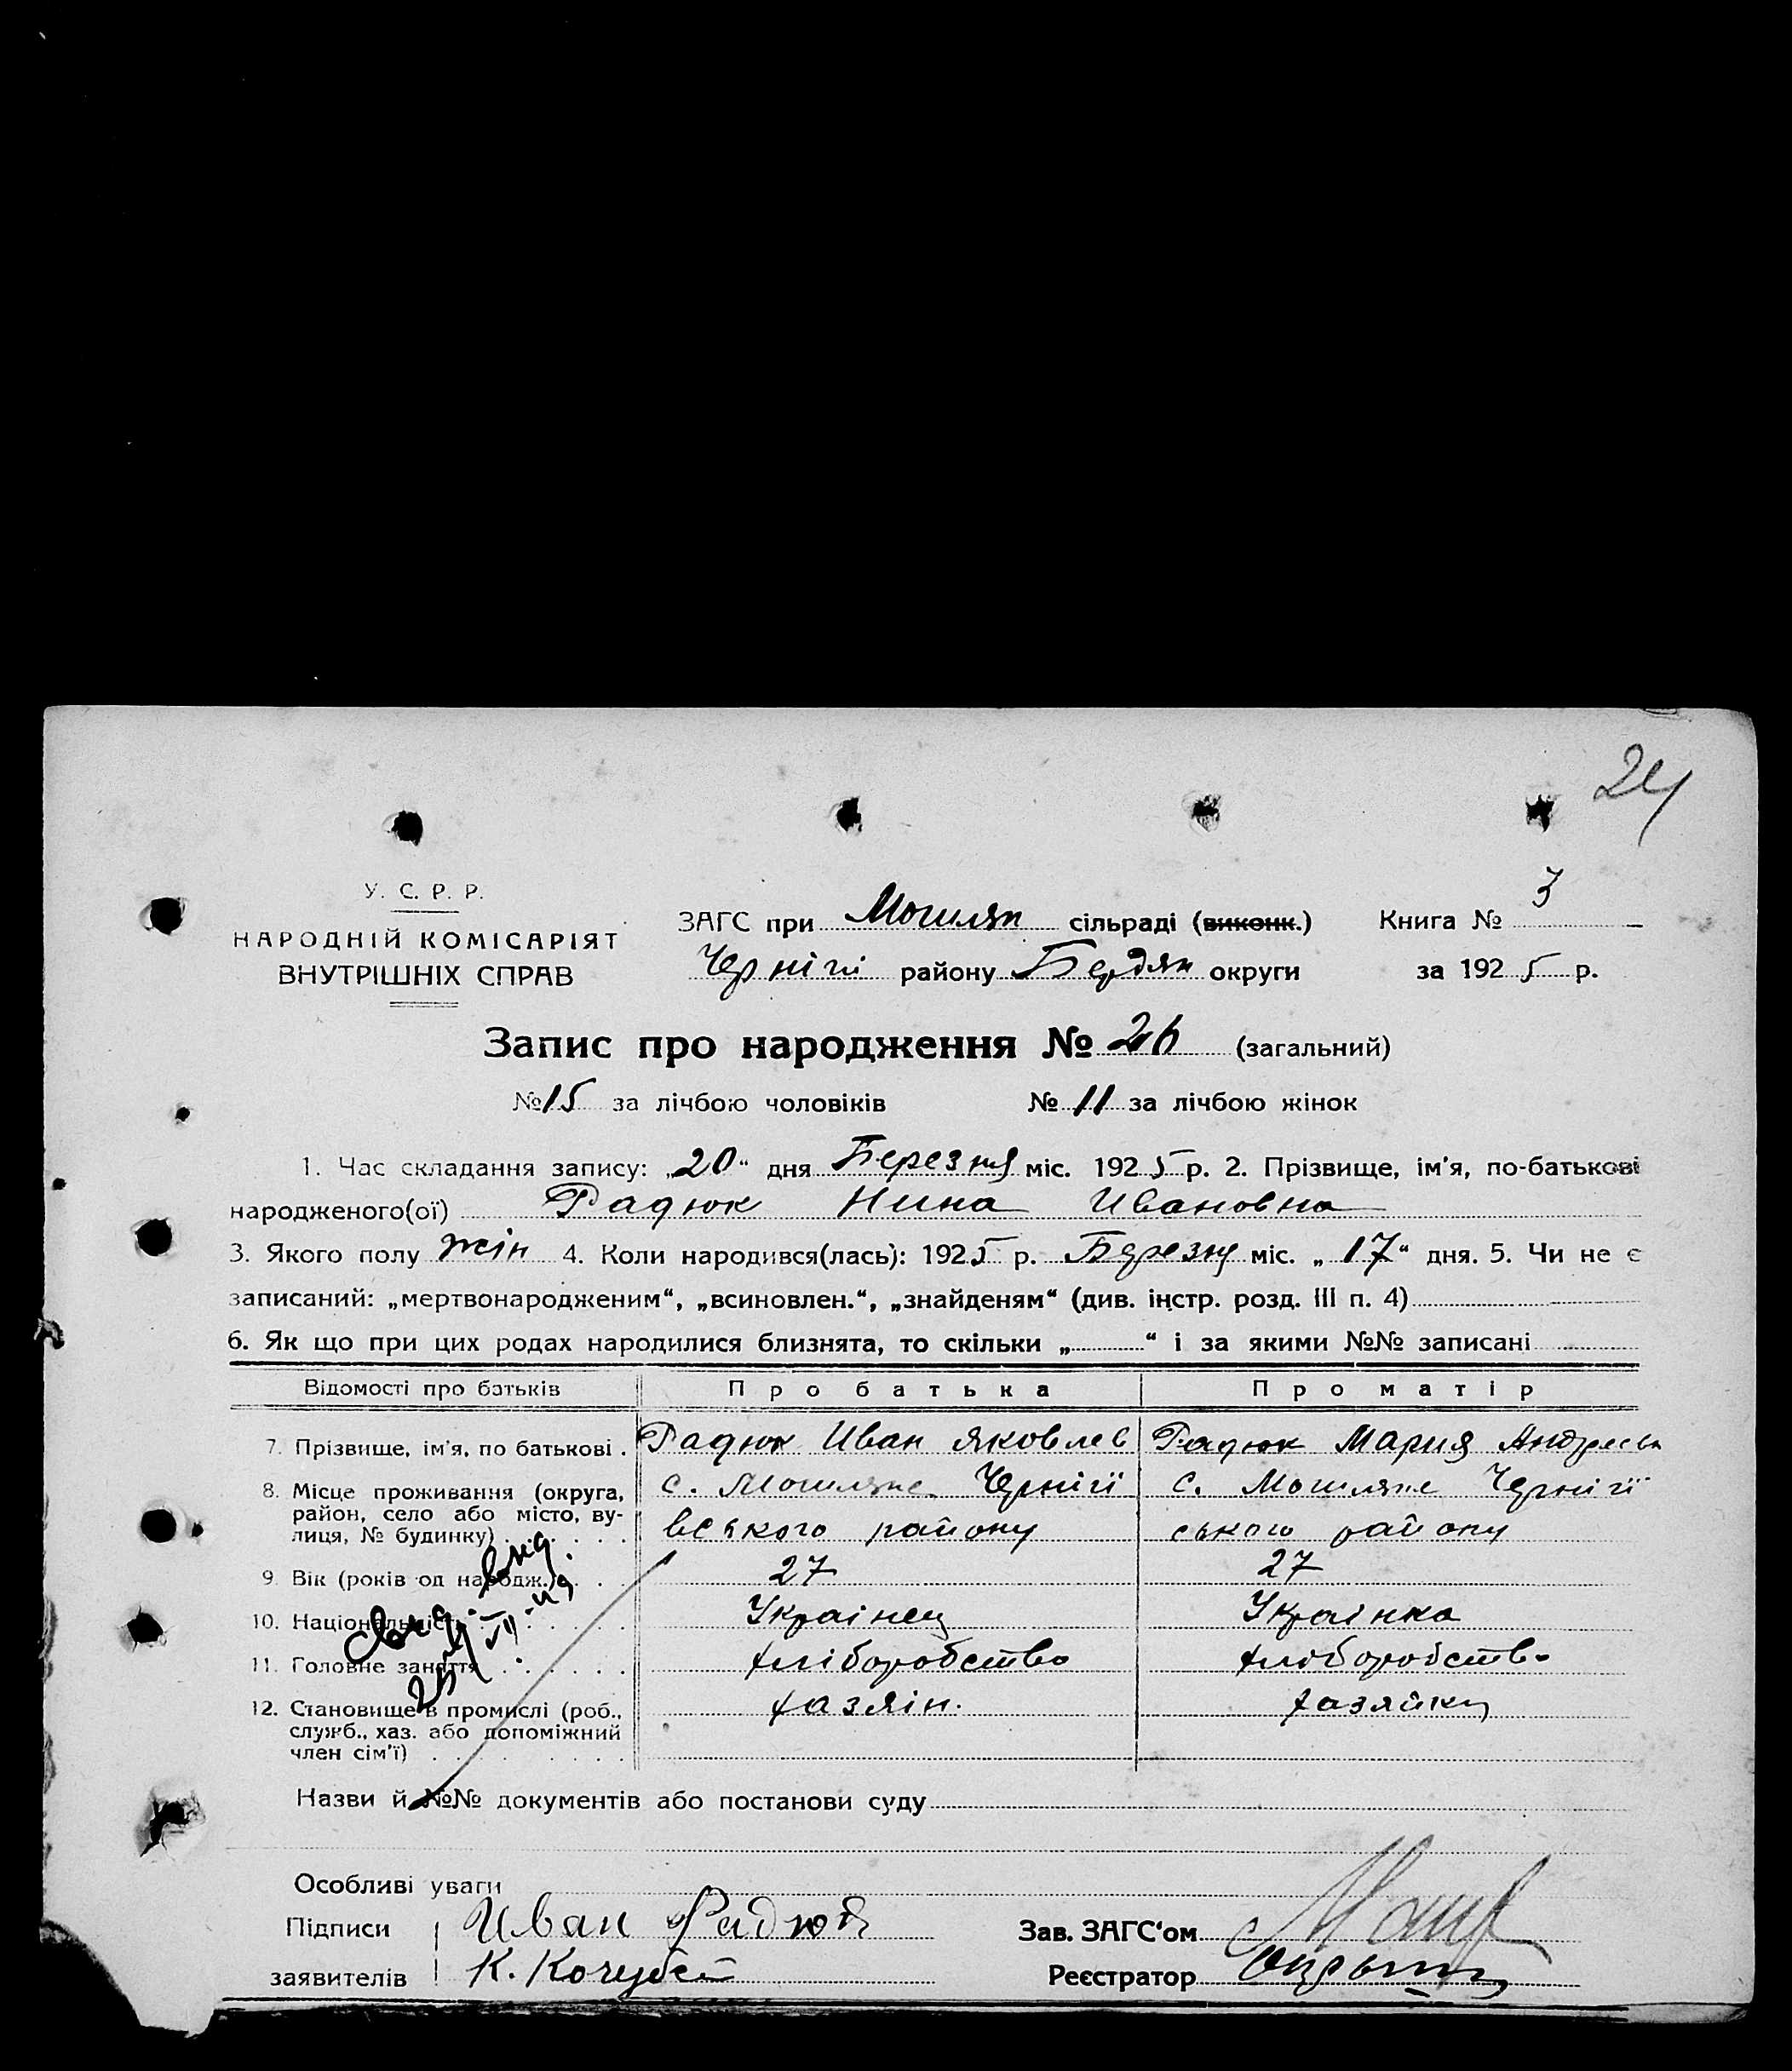 24
У. С. Р. Р.
НАРОДНІЙ КОМІСАРІЯТ
ВНУТРІШНІХ СПРАВ
ЗАГС при Могилян сільраді (виконк.)
Черніги району Бердян округи
Книга № 3
за 1925 р.
Запис про народження № 26 (загальний)
№ 15 за лічбою чоловіків № 11 за лічбою жінок
1. Час складання запису: „20“ дня Березня міс. 1925 р. 2. Прізвище, ім'я, по-батькові
народженого(ої) Радюк Нина Ивановна
3. Якого полу жін 4. Коли народився(лась): 1925 р. Березня міс. „17“ дня. 5. Чи не є
записаний: „мертвонародженим“, „всиновлен.“, „знайденям“ (див. інстр. розд. III п. 4)
6. Як що при цих родах народилися близнята, то скільки „ “ і за якими №№ записані
Відомості про батьків Про батька Про матір
7. Прізвище, ім'я, по батькові . Радюк Иван Яковлев Радюк Мария Андреевн
8. Місце проживання (округа, с. Могиляне Чернігі с. Могиляне Чернігі
район, село або місто, ву-
лиця, № будинку) . . . . вського району ського району
9. Вік (років од народж.) . . 27 27
10. Національність . . . . . Украінец Украінка
11. Головне заняття . . . . . хліборобство хліборобство
12. Становище в промислі (роб., хазяін. хазяйка
служб., хаз. або допоміжний
член сім'ї) . . . . . .
Назви й №№ документів або постанови суду
Особливі уваги
Підписи Иван Радюк
заявителів К. Кочубей
Зав. ЗАГС'ом
Реєстратор